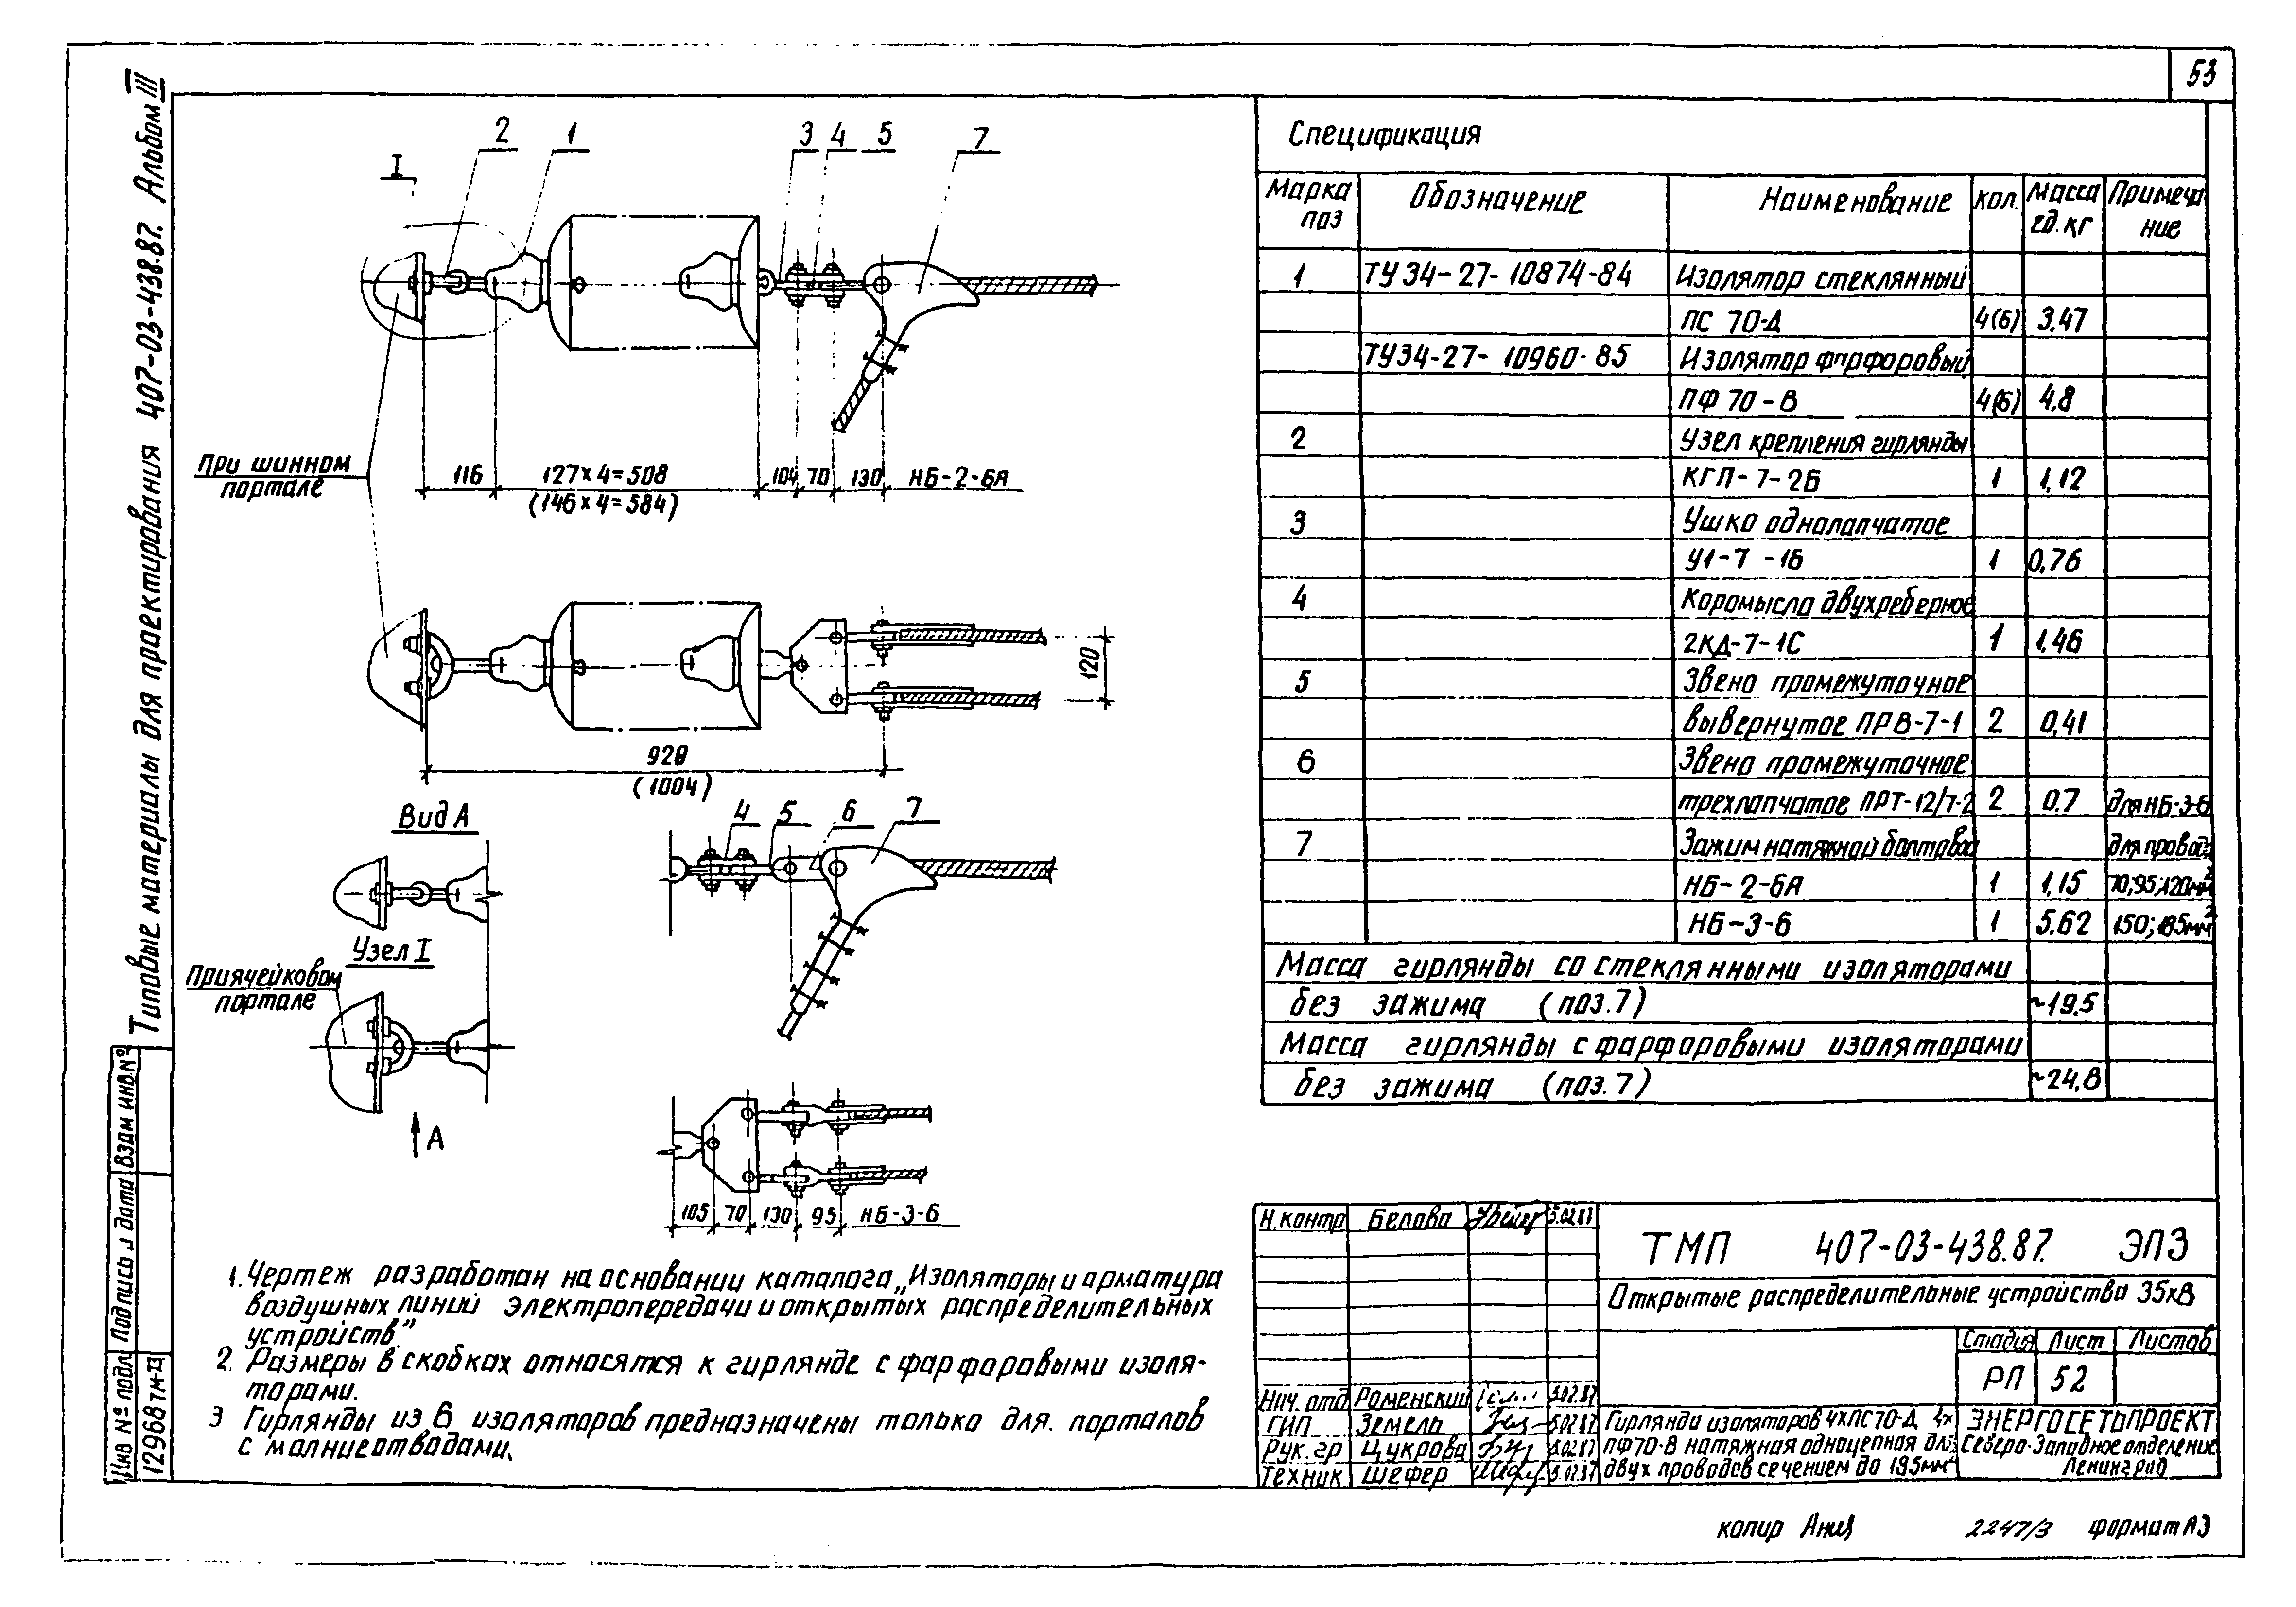 53
Типовые материалы для проектирования 407-03-438.87. Альбом III
I
2
1
3
4
5
7
При шинном
портале
116
127×4=508
(146×4=584)
104
70
130
НБ-2-6А
120
928
(1004)
Вид А
Узел I
При ячейковом
портале
А
4
5
6
7
105
70
130
95
НБ-3-6
1. Чертеж разработан на основании каталога „Изоляторы и арматура
воздушных линий электропередачи и открытых распределительных
устройств"
2. Размеры в скобках относятся к гирлянде с фарфоровыми изоля-
торами.
3 Гирлянды из 6 изоляторов предназначены только для порталов
с молниеотводами.
Спецификация
Марка поз | Обозначение | Наименование | кол. | Масса ед. кг | Примеча-ние
1 ТУ 34-27-10874-84 Изолятор стеклянный
ПС 70-Д 4(6) 3,47
ТУ34-27-10960-85 Изолятор фарфоровый
ПФ 70-В 4(6) 4,8
2 Узел крепления гирлянды
КГП-7-2Б 1 1,12
3 Ушко однолапчатое
У1-7-16 1 0,76
4 Коромысло двухреберное
2КД-7-1С 1 1,46
5 Звено промежуточное
вывернутое ПРВ-7-1 2 0,41
6 Звено промежуточное
трехлапчатое ПРТ-12/7-2 2 0,7 для НБ-3-6
7 Зажим натяжной болтовой для провода
НБ-2-6А 1 1,15 70;95;120мм²
НБ-3-6 1 5,62 150;185мм²
Масса гирлянды со стеклянными изоляторами
без зажима (поз.7) ~19,5
Масса гирлянды с фарфоровыми изоляторами
без зажима (поз.7) ~24,8
Н.контр Белова 5.02.87
Нач. отд Роменский 5.02.87
ГИП Земель 5.02.87
Рук. гр Цукрова 5.02.87
Техник Шефер 5.02.87
ТМП 407-03-438.87. ЭП3
Открытые распределительные устройства 35кВ
Стадия Лист Листов
РП 52
Гирлянда изоляторов 4хПС70-Д, 4х
ПФ70-В натяжная одноцепная для
двух проводов сечением до 185мм²
ЭНЕРГОСЕТЬПРОЕКТ
Северо-Западное отделение
Ленинград
Взам инв. №
Подпись и дата
Инв № подл
12968
копир
2247/3
формат А3